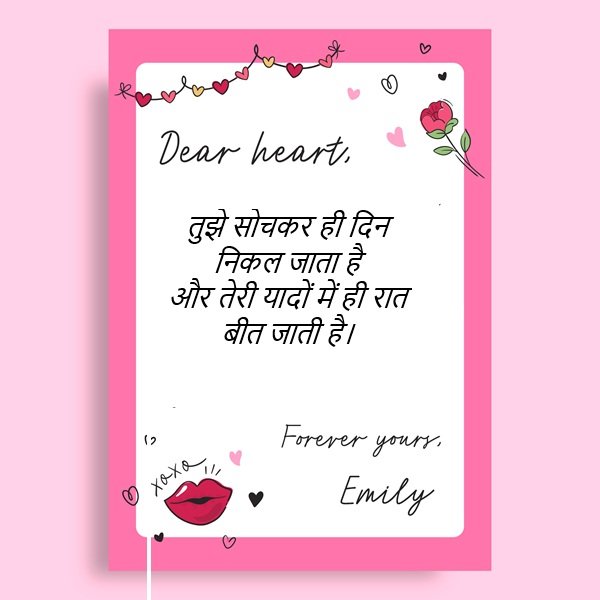 Dear heart,
तुझे सोचकर ही दिन
निकल जाता है
और तेरी यादों में ही रात
बीत जाती है।
Forever yours,
xoxo
Emily